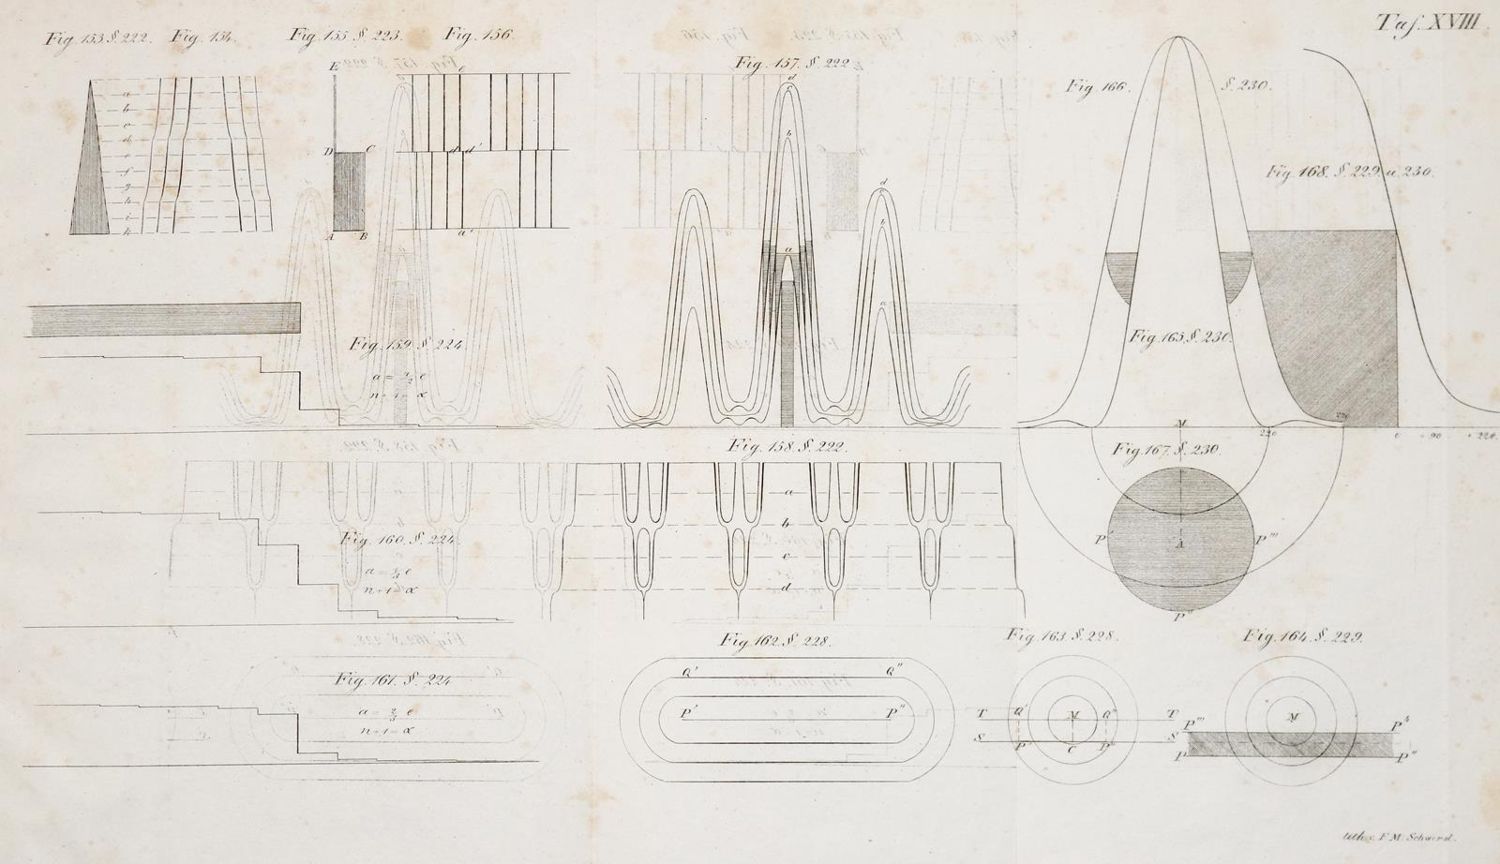 Taf. XVIII
Fig. 153 §. 222. Fig. 154. Fig. 155 §. 223. Fig. 156
a
b
c
d
e
f
g
h
i
k
E
D
C
A
B
e
d d'
a'
Fig. 157. §. 222
d
b
a
d
b
a
Fig. 166. §. 230.
Fig. 168. §. 229. u. 230.
Fig. 165. §. 230.
Fig. 159. §. 224.
n + 1 = α
Fig. 158. §. 222.
a
b
c
d
Fig. 160. §. 224.
n + 1 = α
M
220
220
0
90
220
Fig. 167. §. 230.
P'
A
P'''
P''
Fig. 161. §. 224
a = 2/3 e
n + 1 = α
Fig. 162. §. 228.
Q' Q''
P' P''
Fig. 163. §. 228.
T Q' M Q'' T
S P' C P'' S
Fig. 164. §. 229.
M
P''' P⁴
P' P''
lithog. F. M. Schwerd.